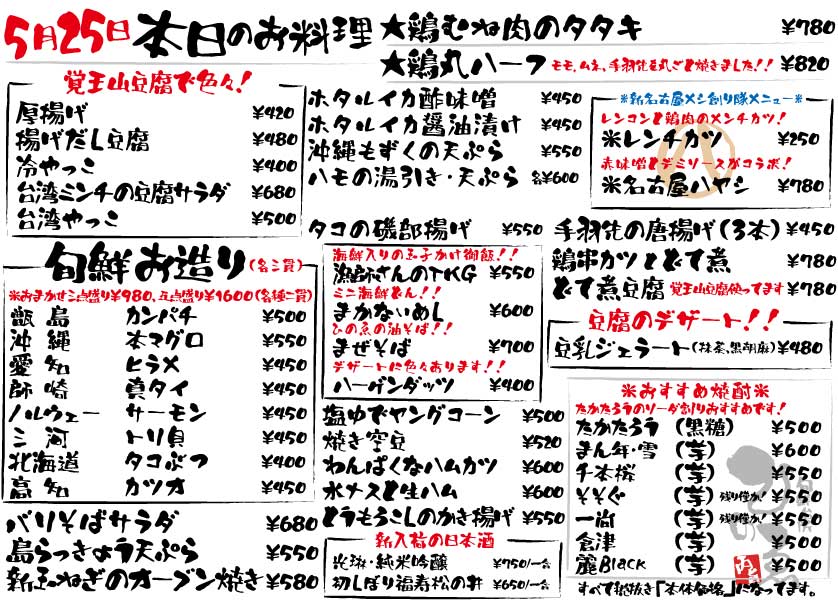 5月25日 本日のお料理
★鶏むね肉のタタキ ¥780
★鶏丸ハーフ モモ、ムネ、手羽先を丸ごと焼きました!! ¥820
覚王山豆腐で色々!
厚揚げ ¥420
揚げだし豆腐 ¥480
冷やっこ ¥400
台湾ミンチの豆腐サラダ ¥680
台湾やっこ ¥500
ホタルイカ酢味噌 ¥450
ホタルイカ醤油漬け ¥450
沖縄もずくの天ぷら ¥550
ハモの湯引き・天ぷら 各¥600
※新名古屋メシ創り隊メニュー※
レンコンと鶏肉のメンチカツ!
※レンチカツ ¥250
赤味噌とデミソースがコラボ!
※名古屋ハヤシ ¥780
旬鮮お造り(各二貫)
※おまかせ三点盛り¥980、五点盛り¥1600(各種二貫)
甑島 カンパチ ¥500
沖縄 本マグロ ¥550
愛知 ヒラメ ¥450
師崎 真タイ ¥450
ノルウェー サーモン ¥450
三河 トリ貝 ¥450
北海道 タコぶつ ¥400
高知 カツオ ¥450
バリそばサラダ ¥680
島らっきょう天ぷら ¥550
新玉ねぎのオーブン焼き ¥580
タコの磯部揚げ ¥550
海鮮入りの玉子かけ御飯!!
漁師さんのTKG ¥550
ミニ海鮮どん!!
まかないめし ¥600
ひの魚の油そば!!
まぜそば ¥700
デザートに色々あります!!
ハーゲンダッツ ¥400
塩ゆでヤングコーン ¥500
焼き空豆 ¥520
わんぱくなハムカツ ¥600
水ナスと生ハム ¥600
とうもろこしのかき揚げ ¥550
新入荷の日本酒
光琳・純米吟醸 ¥750/一合
初しぼり福寿松の井 ¥650/一合
手羽先の唐揚げ(3本) ¥450
鶏串カツとどて煮 ¥780
どて煮豆腐 覚王山豆腐使ってます ¥780
豆腐のデザート!!
豆乳ジェラート(抹茶、黒胡麻) ¥480
※おすすめ焼酎※
たかたろうのソーダ割りおすすめです!
たかたろう (黒糖) ¥500
まん年・雪 (芋) ¥600
千本桜 (芋) ¥550
そそぐ (芋) 残り僅か! ¥550
一尚 (芋) 残り僅か! ¥550
倉津 (芋) ¥500
麗Black (芋) ¥500
すべて税抜き「本体価格」になってます。